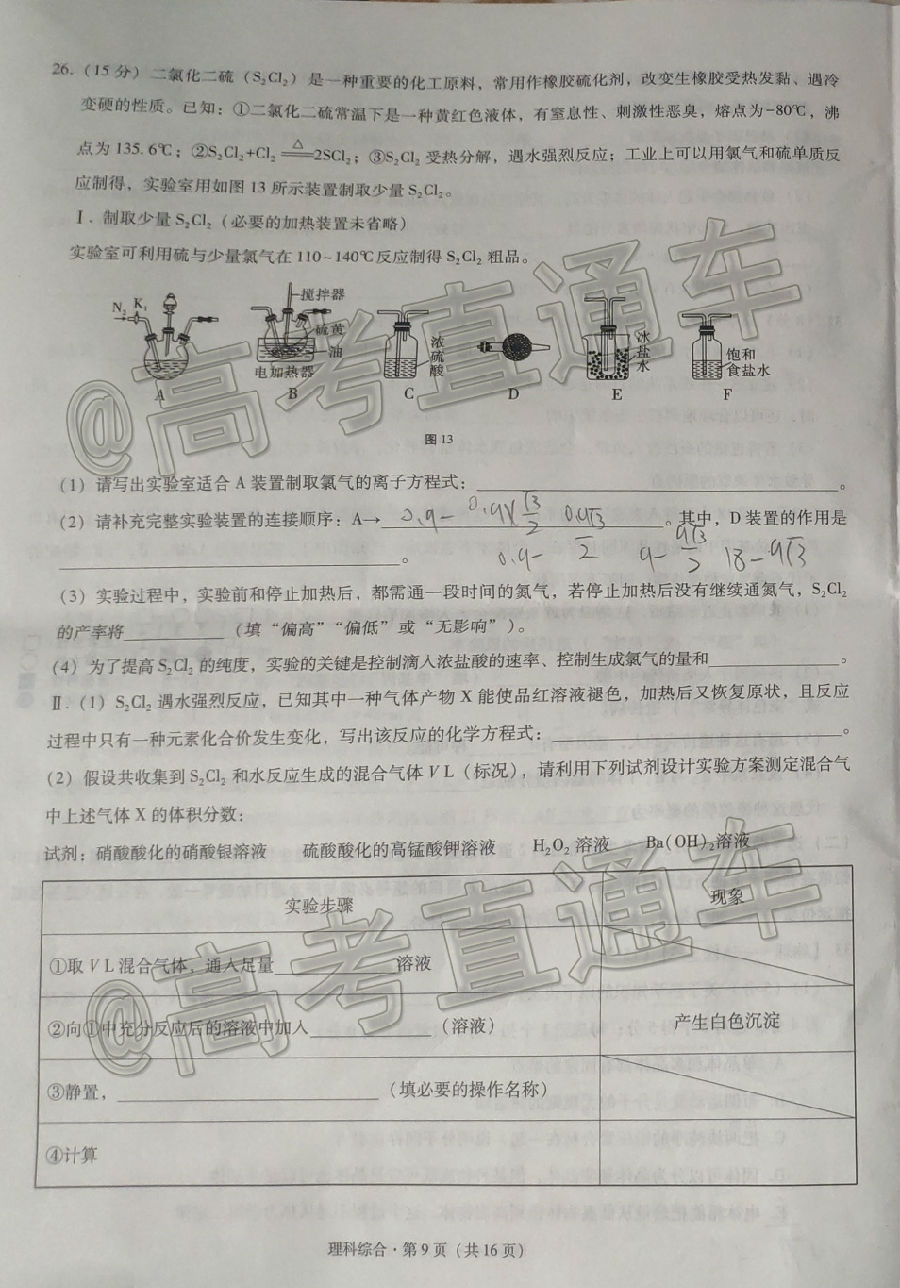 26.（15分）二氯化二硫（S₂Cl₂）是一种重要的化工原料，常用作橡胶硫化剂，改变生橡胶受热发黏、遇冷
变硬的性质。已知：①二氯化二硫常温下是一种黄红色液体，有窒息性、刺激性恶臭，熔点为-80℃，沸
点为135.6℃；②S₂Cl₂+Cl₂ ≜ 2SCl₂；③S₂Cl₂受热分解，遇水强烈反应；工业上可以用氯气和硫单质反
应制得，实验室用如图13所示装置制取少量S₂Cl₂。
Ⅰ. 制取少量S₂Cl₂（必要的加热装置未省略）
实验室可利用硫与少量氯气在110~140℃反应制得S₂Cl₂粗品。
N₂ K₁
搅拌器
硫黄
油
电加热器
浓硫酸
冰盐水
饱和食盐水
A B C D E F
图13
（1）请写出实验室适合A装置制取氯气的离子方程式：。
（2）请补充完整实验装置的连接顺序：A→。其中，D装置的作用是
。
（3）实验过程中，实验前和停止加热后，都需通一段时间的氮气，若停止加热后没有继续通氮气，S₂Cl₂
的产率将（填“偏高”“偏低”或“无影响”）。
（4）为了提高S₂Cl₂的纯度，实验的关键是控制滴入浓盐酸的速率、控制生成氯气的量和。
Ⅱ.（1）S₂Cl₂遇水强烈反应，已知其中一种气体产物X能使品红溶液褪色，加热后又恢复原状，且反应
过程中只有一种元素化合价发生变化，写出该反应的化学方程式：。
（2）假设共收集到S₂Cl₂和水反应生成的混合气体V L（标况），请利用下列试剂设计实验方案测定混合气
中上述气体X的体积分数：
试剂：硝酸酸化的硝酸银溶液 硫酸酸化的高锰酸钾溶液 H₂O₂溶液 Ba(OH)₂溶液
实验步骤 现象
①取V L混合气体，通入足量溶液
②向①中充分反应后的溶液中加入（溶液） 产生白色沉淀
③静置，（填必要的操作名称）
④计算
理科综合·第9页（共16页）
@高考直通车
高考直通车